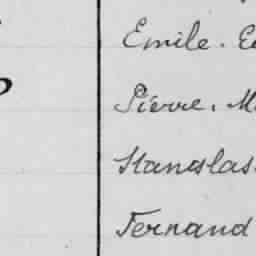 Emile. E
Pierre. M
Stanslas
Fernand